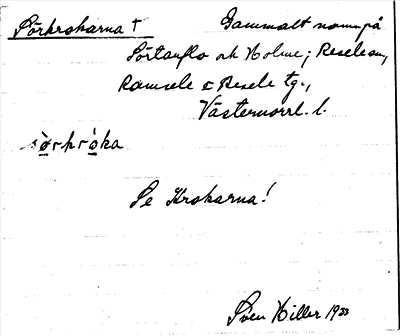 Sörkrokarna † Gammalt namn på
Sörtanflo och Holme; Resele sn,
Ramsele o Resele tg.,
Västernorrl. l.
sørkròka
Se Krokarna!
Sven Hiller 1933